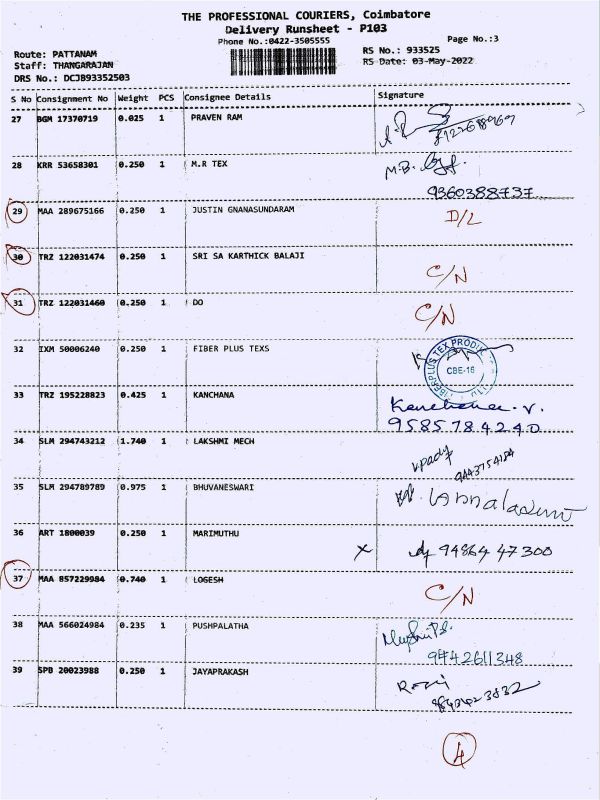 THE PROFESSIONAL COURIERS, Coimbatore
Delivery Runsheet - P103
Phone No.:0422-3505555 Page No.:3
Route: PATTANAM RS No.: 933525
Staff: THANGARAJAN RS Date: 03-May-2022
DRS No.: DCJB93352503
S No Consignment No Weight PCS Consignee Details Signature
27 BGM 17370719 0.025 1 PRAVEN RAM
28 KRR 53658301 0.250 1 M.R TEX M.B.
9360388737
29 MAA 289675166 0.250 1 JUSTIN GNANASUNDARAM D/L
30 TRZ 122031474 0.250 1 SRI SA KARTHICK BALAJI C/N
31 TRZ 122031460 0.250 1 DO C/N
32 IXM 50006240 0.250 1 FIBER PLUS TEXS FIBERPLUS TEX CBE-16
33 TRZ 195228823 0.425 1 KANCHANA Kanchana.V.
9585784240
34 SLM 294743212 1.740 1 LAKSHMI MECH
35 SLM 294789789 0.975 1 BHUVANESWARI
36 ART 1800039 0.250 1 MARIMUTHU X 94864 47300
37 MAA 857229984 0.740 1 LOGESH C/N
38 MAA 566024984 0.235 1 PUSHPALATHA
9442611348
39 SPB 20023988 0.250 1 JAYAPRAKASH Ravi
4